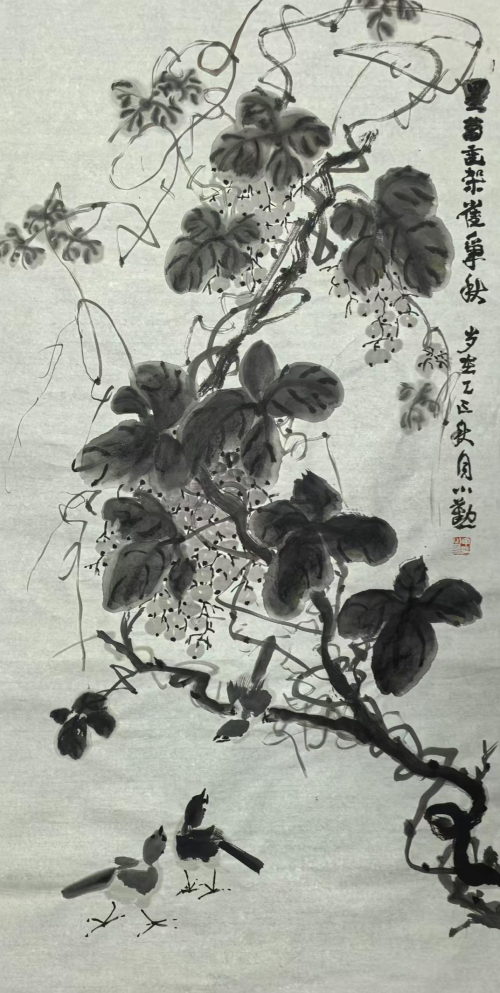 墨葡重架雀争秋 岁在乙巳秋月小勤